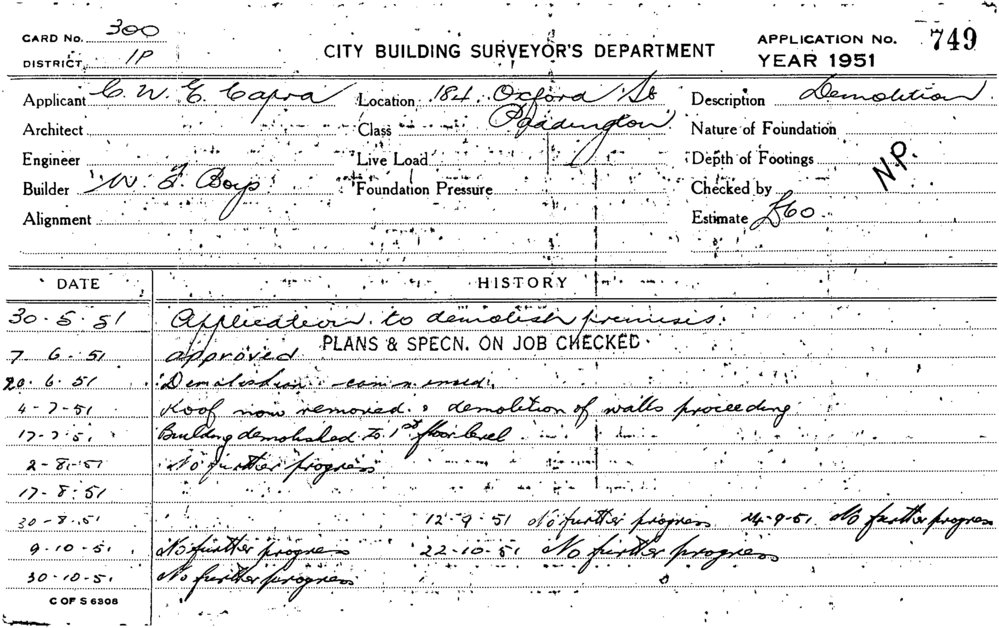 CARD No. 300
DISTRICT. 1P
CITY BUILDING SURVEYOR'S DEPARTMENT
APPLICATION No. 749
YEAR 1951
Applicant C. W. E. Capra Location 184 Oxford St Description Demolition
Architect Class Paddington Nature of Foundation
Engineer Live Load Depth of Footings N.P.
Builder W. F. Boys Foundation Pressure Checked by
Alignment Estimate £60
DATE HISTORY
30. 5. 51 Application to demolish premises.
PLANS & SPECN. ON JOB CHECKED
7 6. 51 approved
20. 6. 51 Demolition commenced.
4-7-51 Roof now removed & demolition of walls proceeding
17-7-51 Building demolished to 1st floor level
2-8-51 No further progress
17-8-51 "
30-8-51 " 12-9-51 No further progress 24-9-51 No further progress
9-10-51 No further progress 22-10-51 No further progress
30-10-51 No further progress
C OF S 6308